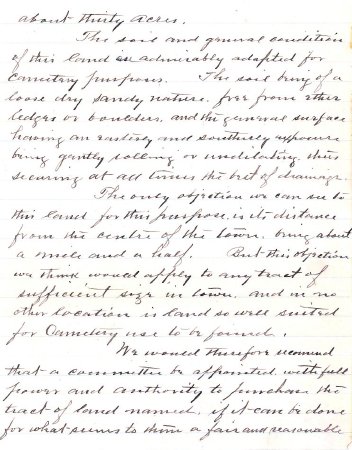 about thirty acres.
The soil and general condition
of this land is admirably adapted for
cemetery purposes. The soil being of a
loose dry sandy nature, free from either
ledges or boulders, and the general surface
having an easterly and southerly exposure
being gently rolling or undulating, thus
securing at all times the best of drainage.
The only objection we can see to
this land for this purpose, is its distance
from the centre of the town, being about
a mile and a half. But this objection
we think would apply to any tract of
sufficient size in town, and in no
other location is land so well suited
for Cemetery use to be found.
We would therefore recommend
that a committee be appointed with full
power and authority to purchase the
tract of land named, if it can be done
for what seems to them a fair and reasonable